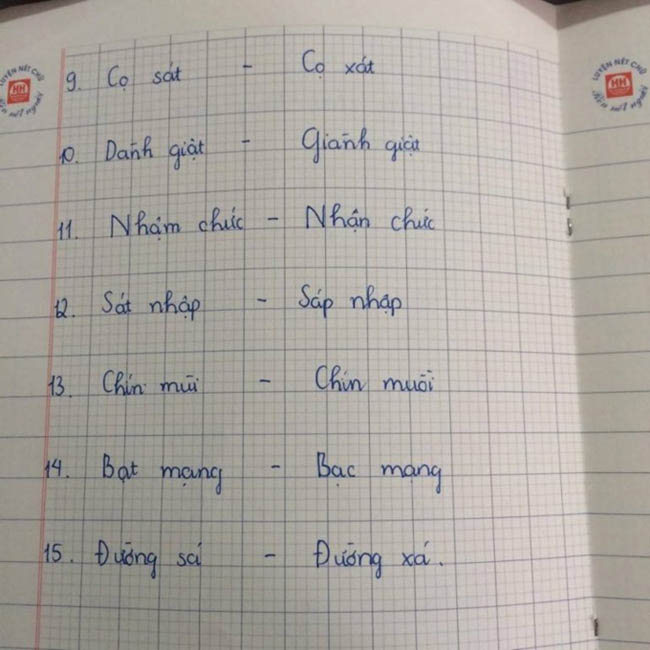 LUYỆN NÉT CHỮ
HH
Rèn nết người
LUYỆN NÉT CHỮ
HH
Rèn nết người
9. Cọ sát - Cọ xát
10. Dành giật - Giành giật
11. Nhậm chức - Nhận chức
12. Sát nhập - Sáp nhập
13. Chín mùi - Chín muồi
14. Bạt mạng - Bạc mạng
15. Đường sá - Đường xá.